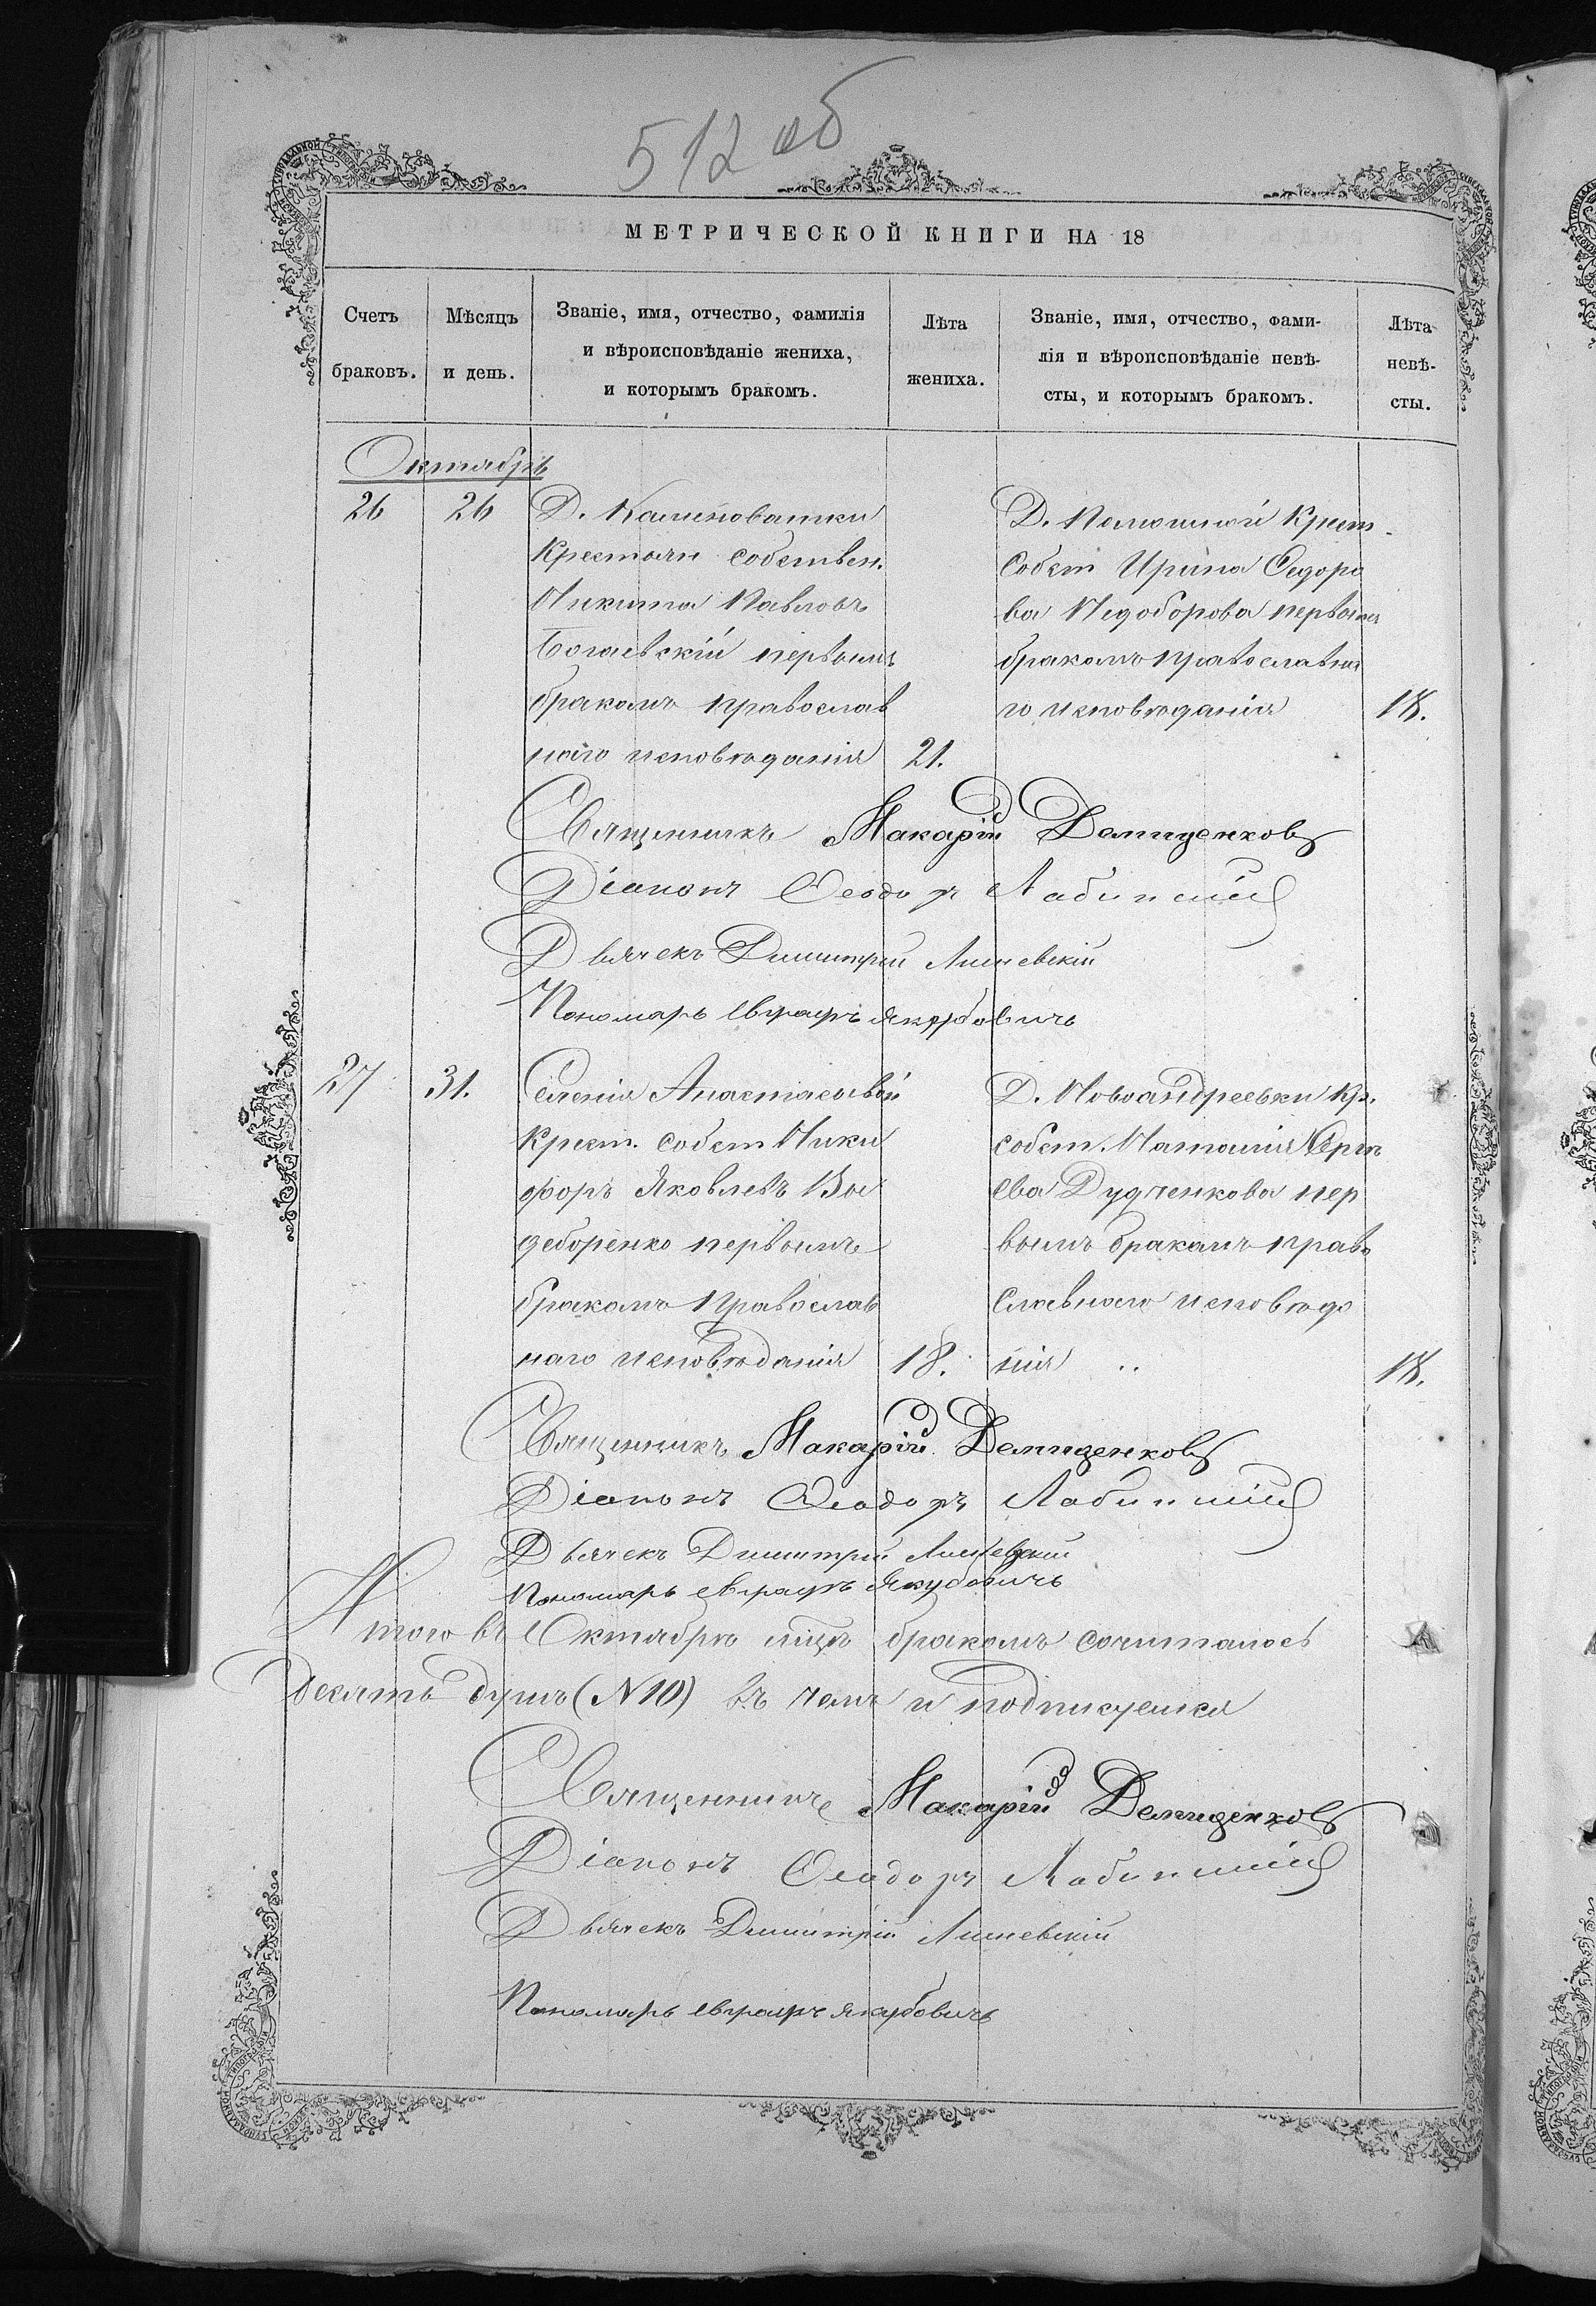 512 об
МЕТРИЧЕСКОЙ КНИГИ НА 18
Счетъ браковъ.
Мѣсяцъ и день.
Званіе, имя, отчество, фамилія
и вѣроисповѣданіе жениха,
и которымъ бракомъ.
Лѣта жениха.
Званіе, имя, отчество, фами-
лія и вѣроисповѣданіе невѣ-
сты, и которымъ бракомъ.
Лѣта невѣ-
сты.
Октябрь
26 26
Д. Калиноватки
Крестьян собствен.
Никита Павловъ
Богаевскій первымъ
бракомъ православ
наго исповѣданія 21.
Д. Помошной Крест.
Собст Ирина Сидоро
ва Недоборова первымъ
бракомъ православна
го исповѣданія 18.
Священникъ Макарій Демиденковъ
Діаконъ Ѳеодоръ
Дьячекъ Димитрій
Пономарь Якубовичъ
27 31.
Селенія
Крест. собст Ники
форъ Яковлевъ
деборенко первымъ
бракомъ Православ
наго исповѣданія 18.
Д. Новоандреевки Кр.
собст. Наталія Серге
ева Дудченкова пер
вымъ бракамъ право
славнаго исповѣда
нія 18.
Священникъ Макарій Демиденковъ
Діаконъ Ѳеодоръ
Дьячекъ Димитрій
Пономарь Якубовичъ
Итого въ Октябрѣ мцѣ бракомъ сочиталось
Десять душъ (N 10) въ томъ и подписуемся
Священникъ Макарій Демиденковъ
Діаконъ Ѳеодоръ
Дьячекъ Димитрій
Пономарь Якубовичъ